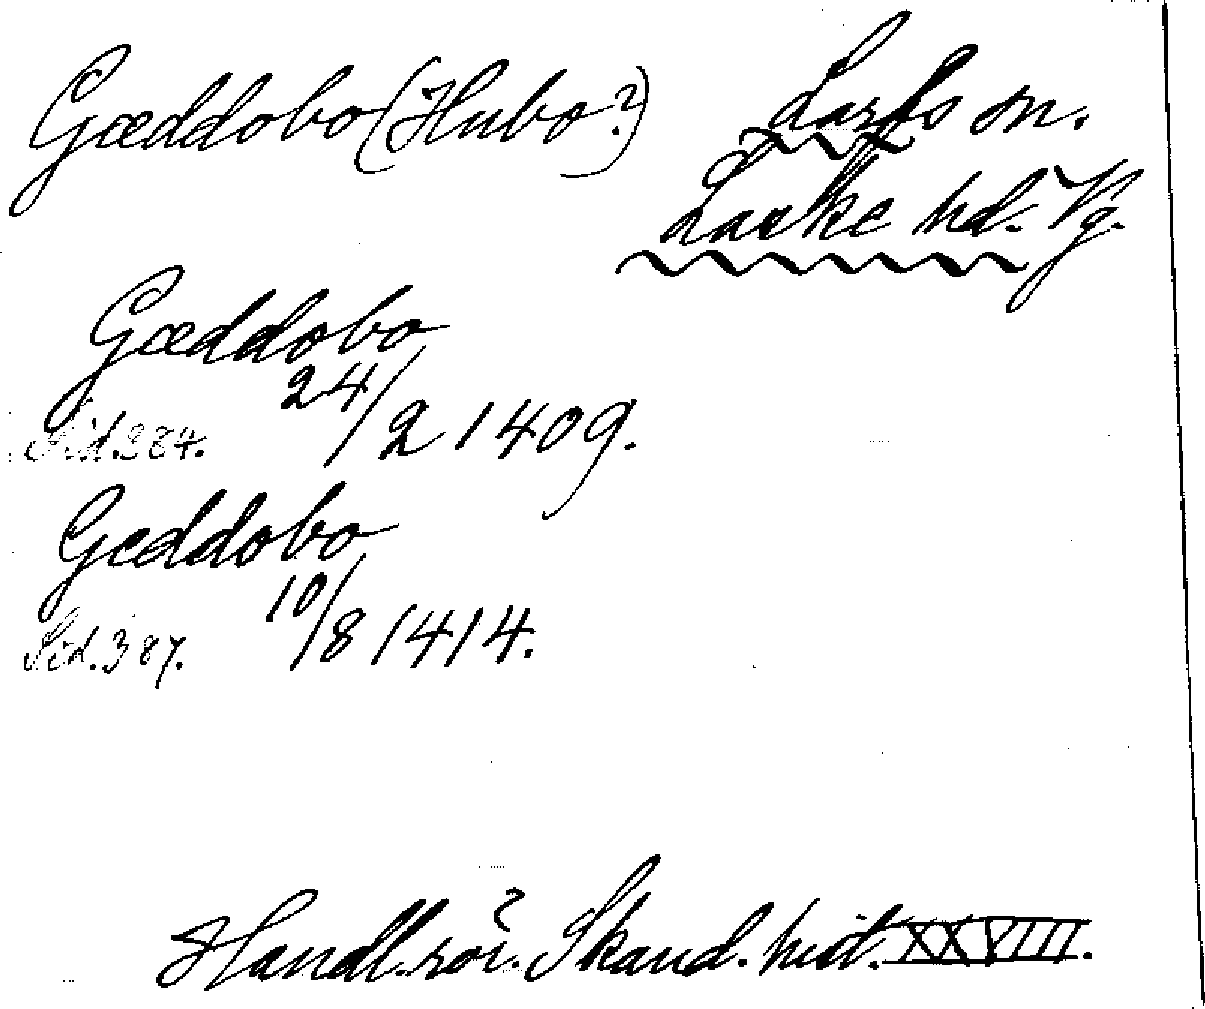 Gæddobo (Hubo?)
Larfs sn.
Laske hd. Vg.
Gæddobo
24/2 1409.
Sid. 284.
Geddobo
10/8 1414.
Sid. 387.
Handl. rör. Skand. hist. XXVIII.